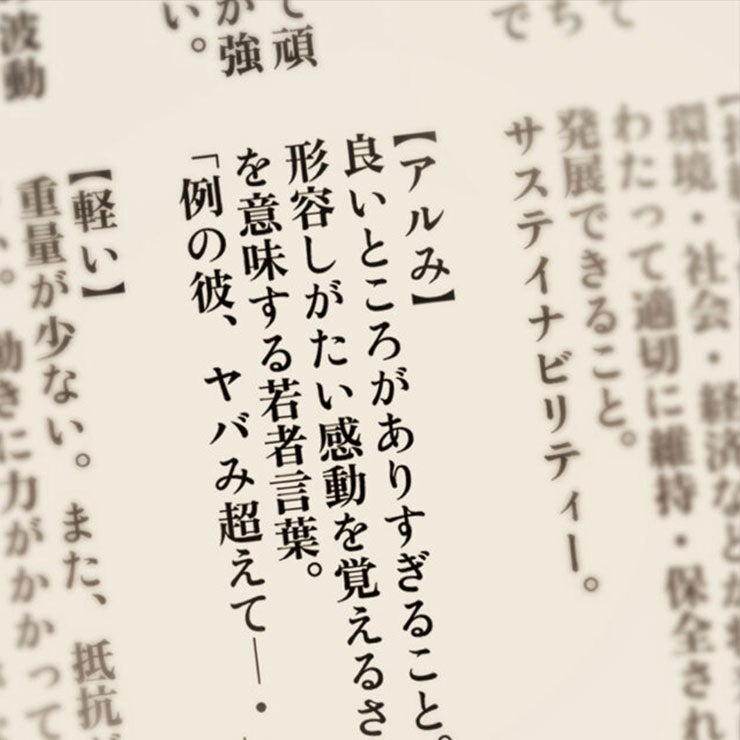 て
ち
で
環境・社会・経済などが将
わたって適切に維持・保全され
発展できること。
サステイナビリティー。
て頑
が強
い。
【アルみ】
良いところがありすぎること。
形容しがたい感動を覚えるさ
を意味する若者言葉。
「例の彼、ヤバみ超えて―・
波動
【軽い】
重量が少ない。また、抵抗が
い。動きに力がかかって